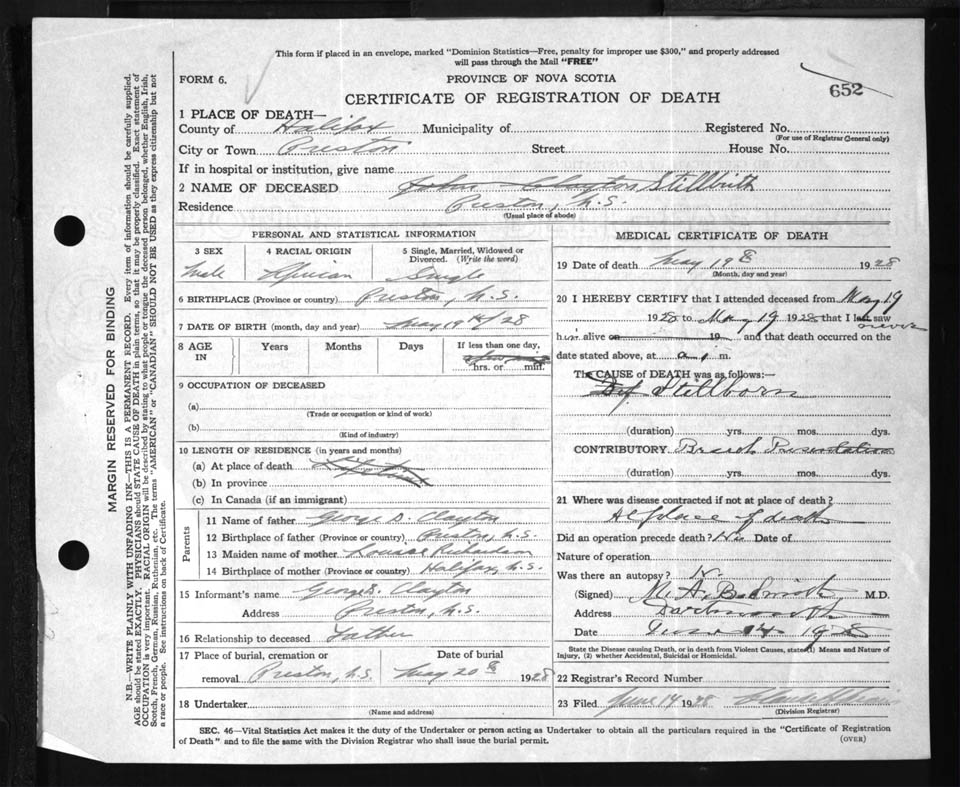 This form if placed in an envelope, marked "Dominion Statistics—Free, penalty for improper use $300," and properly addressed
will pass through the Mail "FREE"
FORM 6.
PROVINCE OF NOVA SCOTIA
652
CERTIFICATE OF REGISTRATION OF DEATH
1 PLACE OF DEATH—
County of Halifax Municipality of Registered No.
(For use of Registrar General only)
City or Town Preston Street House No.
If in hospital or institution, give name
2 NAME OF DECEASED John Clayton Stillbirth
Residence Preston, N.S.
(Usual place of abode)
PERSONAL AND STATISTICAL INFORMATION
3 SEX 4 RACIAL ORIGIN 5 Single, Married, Widowed or Divorced. (Write the word)
Male African Single
6 BIRTHPLACE (Province or country) Preston, N.S.
7 DATE OF BIRTH (month, day and year) May 19th/28
8 AGE IN Years Months Days If less than one day,
hrs. or min.
9 OCCUPATION OF DECEASED
(a)
(Trade or occupation or kind of work)
(b)
(Kind of industry)
10 LENGTH OF RESIDENCE (in years and months)
(a) At place of death
(b) In province
(c) In Canada (if an immigrant)
Parents
11 Name of father George D. Clayton
12 Birthplace of father (Province or country) Preston, N.S.
13 Maiden name of mother Louise Richardson
14 Birthplace of mother (Province or country) Halifax, N.S.
15 Informant's name George D. Clayton
Address Preston, N.S.
16 Relationship to deceased Father
17 Place of burial, cremation or Date of burial
removal Preston, N.S. May 20 1928
18 Undertaker
(Name and address)
MEDICAL CERTIFICATE OF DEATH
19 Date of death May 19 1928
(Month, day and year)
20 I HEREBY CERTIFY that I attended deceased from May 19
1928 to May 19 1928 that I last saw
never
him alive on 19 and that death occurred on the
date stated above, at a.m.
The CAUSE of DEATH was as follows:—
Stillborn
(duration) yrs. mos. dys.
CONTRIBUTORY Breech Presentation
(duration) yrs. mos. dys.
21 Where was disease contracted if not at place of death?
At place of death
Did an operation precede death? No Date of
Nature of operation
Was there an autopsy? N.
(Signed) M.D.
Address Dartmouth
Date June 14 1928
State the Disease causing Death, or in death from Violent Causes, state (1) Means and Nature of
Injury, (2) whether Accidental, Suicidal or Homicidal.
22 Registrar's Record Number
23 Filed June 14 1928
(Division Registrar)
SEC. 46—Vital Statistics Act makes it the duty of the Undertaker or person acting as Undertaker to obtain all the particulars required in the "Certificate of Registration
of Death" and to file the same with the Division Registrar who shall issue the burial permit.
(OVER)
MARGIN RESERVED FOR BINDING
N.B.—WRITE PLAINLY WITH UNFADING INK—THIS IS A PERMANENT RECORD. Every item of information should be carefully supplied.
AGE should be stated EXACTLY. PHYSICIANS should STATE CAUSE OF DEATH in plain terms, so that it may be properly classified. Exact statement of
OCCUPATION is very important. RACIAL ORIGIN will be described by stating to what people or tongue the deceased person belonged, whether English, Irish,
Scotch, French, German, Russian, Ruthenian, etc. The terms "AMERICAN" or "CANADIAN" SHOULD NOT BE USED as they express citizenship but not
a race or people. See instructions on back of Certificate.